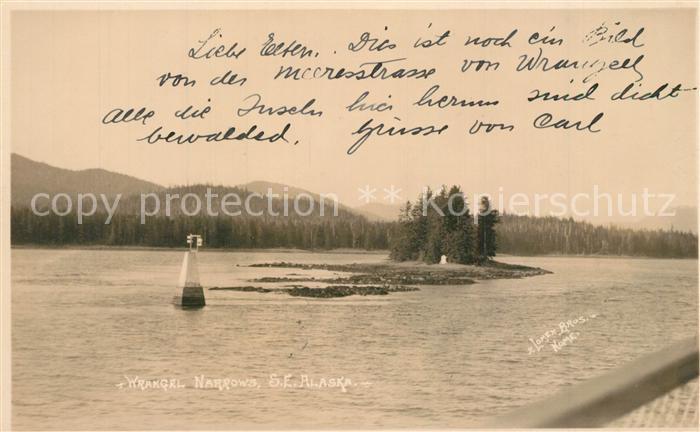 Liebe Eltern. Dies ist noch ein Bild
von der Meeresstrasse von Wrangell
Alle die Inseln hier herum sind dicht
bewalded. Grüsse von Carl
copy copyright ** Kopierschutz **
Lomen Bros.
Nome.
Wrangel Narrows, S.E. Alaska.